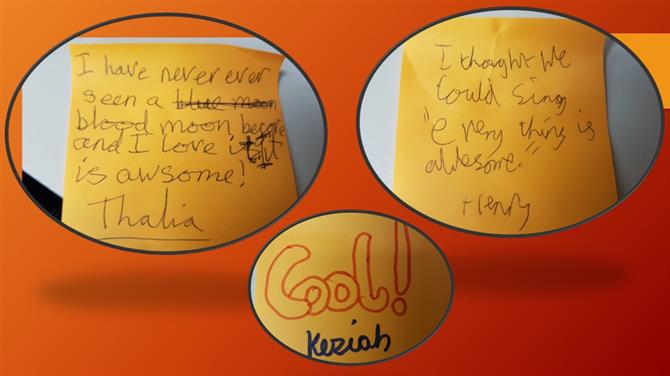 I have never ever
seen a blue moon
blood moon before
and I love it it
is awsome!
Thalia
I thought we
Could Sing
"every thing is
awesome."
Henry
Cool!
Keziah